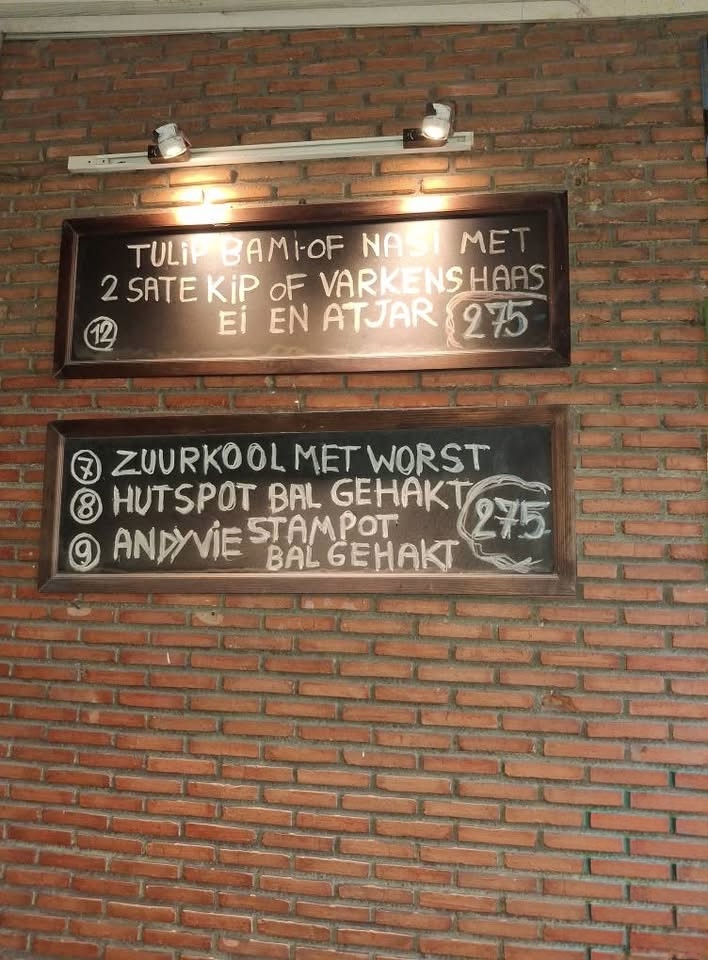 TULIP BAMI-OF NASI MET
2 SATE KIP OF VARKENSHAAS
EI EN ATJAR 275
12
7 ZUURKOOL MET WORST
8 HUTSPOT BAL GEHAKT 275
9 ANDYVIE STAMPOT
BAL GEHAKT